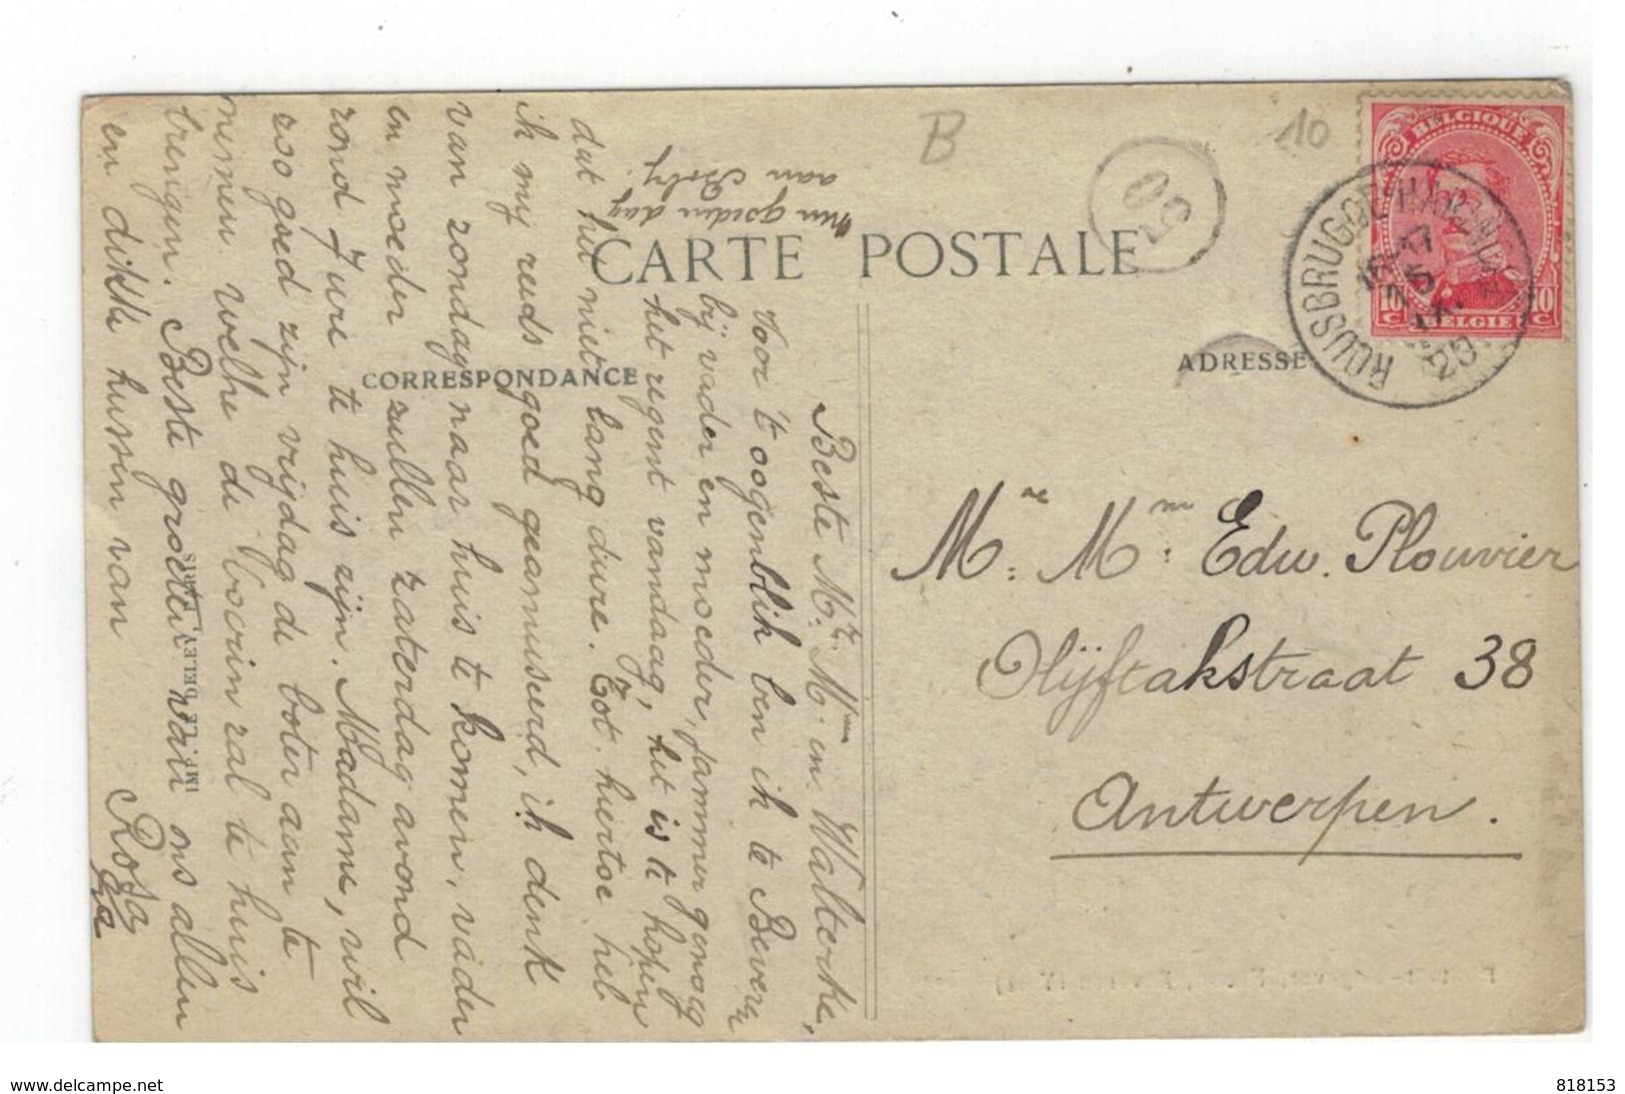 B
10
CARTE POSTALE
CORRESPONDANCE
ADRESSE
BELGIQUE
BELGIE
10 C
10 C
ROUSBRUGGE-HARINGHE
20
Mr. Mme. Edw. Plouvier
Olijftakstraat 38
Antwerpen.
Beste Mr. Mme en Walterke,
Voor 't oogenblik ben ik te Beveren
bij vader en moeder, jammer genoeg
het regent vandaag, het is te hopen
dat het niet lang dure. Tot hiertoe heb
ik my reeds goed geamuseerd, ik denk
van zondag naar huis te komen, vader
en moeder zullen zaterdag avond
rond 7 ure te huis zijn. Madame, wil
zoo goed zijn vrijdag de boter aan te
nemen welke de boerin zal te huis
brengen. Beste groeten van ons allen
en dikke kussen van
Rosa
een goeden dag
aan
IMP. DELEY
www.delcampe.net
818153